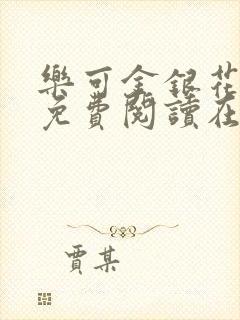 樂可金銀花
免費閱讀在
賈某